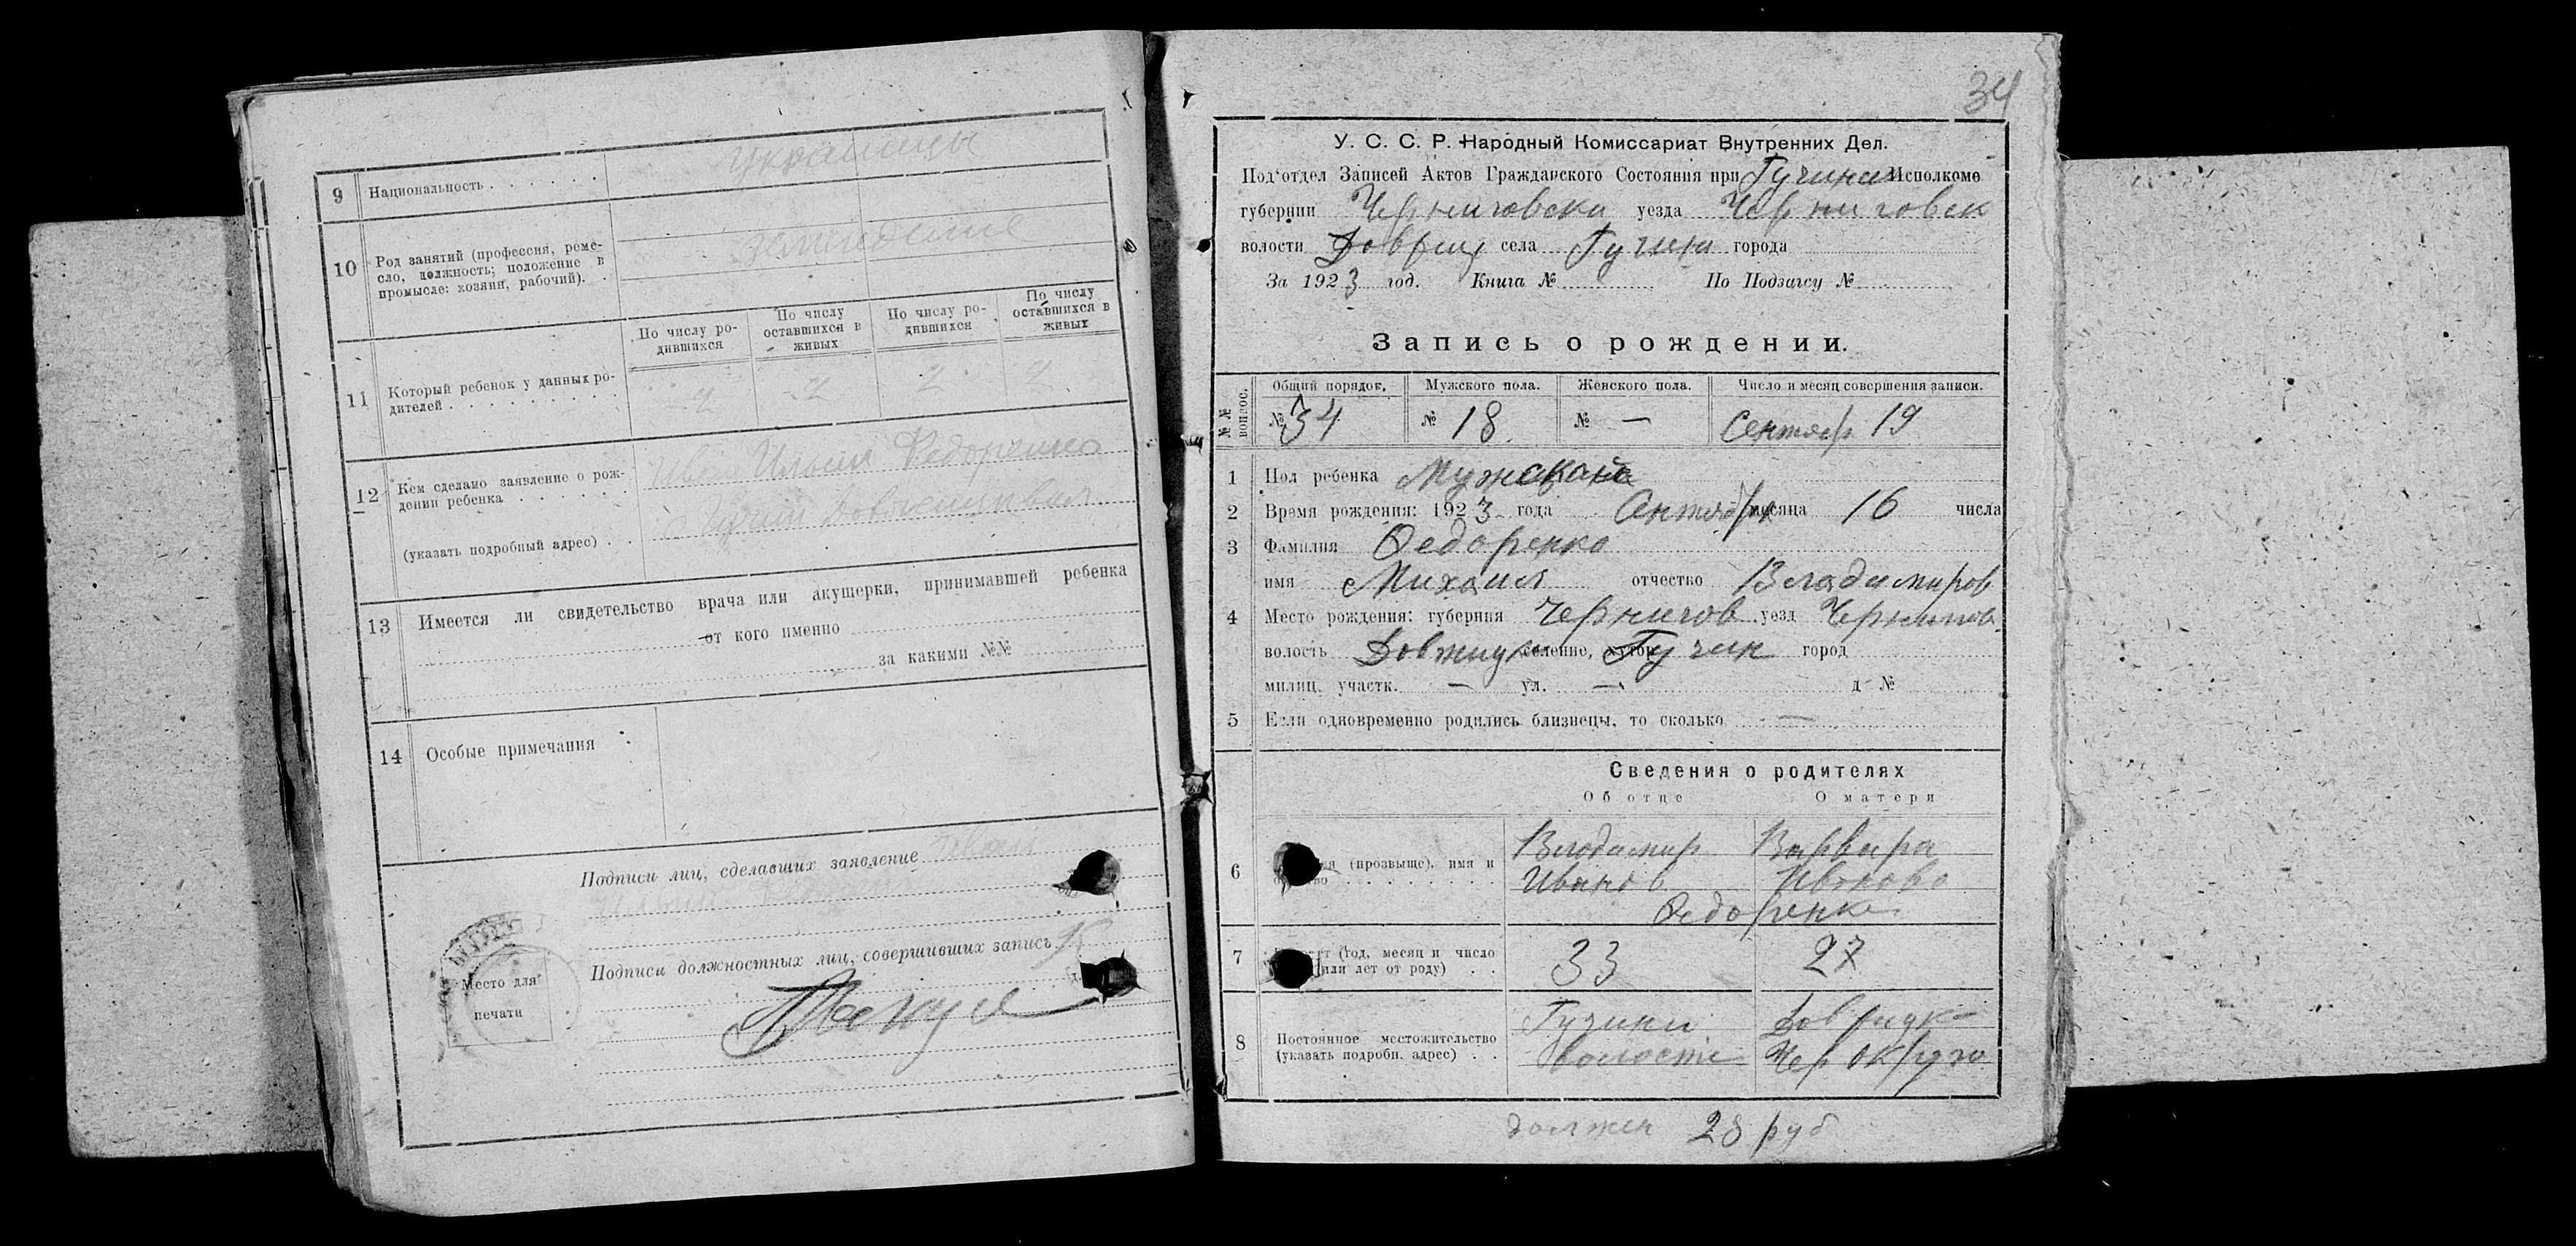 9 Национальность . . . . . . Украинцы
10 Род занятий (профессия, реме-
сло, должность; положение в
промысле: хозяин, рабочий). .
По числу ро-
дившихся
По числу
оставшихся в
живых
По числу ро-
дившихся
По числу
оставшихся в
живых
11 Который ребенок у данных ро-
дителей . . . . . . . . . 2 2 2 2
12 Кем сделано заявление о рож-
дении ребенка . . . . . . Ильин Федоренко
(указать подробный адрес) . .
13 Имеется ли свидетельство врача или акушерки, принимавшей ребенка
от кого именно
за какими №№
14 Особые примечания
Подписи лиц, сделавших заявление Иван
Подписи должностных лиц, совершивших запись
Место для
печати
34
У. С. С. Р. Народный Комиссариат Внутренних Дел.
Под'отдел Записей Актов Гражданского Состояния при Гучинск Исполкоме
губернии Черниговски уезда Черниговск
волости села Гучин города
За 1923 год. Книга № По Подзагсу №
Запись о рождении.
№ № вопрос. Общий порядок. Мужского пола. Женского пола. Число и месяц совершения записи.
№ 34 № 18 № — Сентяб 19
1 Пол ребенка
2 Время рождения: 1923 года месяца 16 числа
3 Фамилия Федоренко
имя Михаил отчество Владимиров
4 Место рождения: губерния Чернигов уезд Чернигов
волость Довжицк селение, хутор Гучин город
милиц. участк. — ул. — д №
5 Если одновременно родились близнецы, то сколько —
Сведения о родителях
Об отце О матери
6 (прозвыще), имя и Владимир Варвара
Иванов
Федоренко
7 (год, месяц и число 33 27
или лет от роду) . .
8 Постоянное местожительство Гучин
(указать подробн. адрес) . . волости Чер округо
должен 28 руб